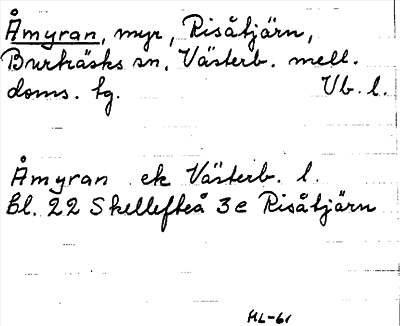 Åmyran, myr, Risåtjärn,
Burträsks sn, Västerb. mell.
doms. tg. Vb. l.
Åmyran ek Västerb. l.
Bl. 22 Skellefteå 3c Risåtjärn
HL-61